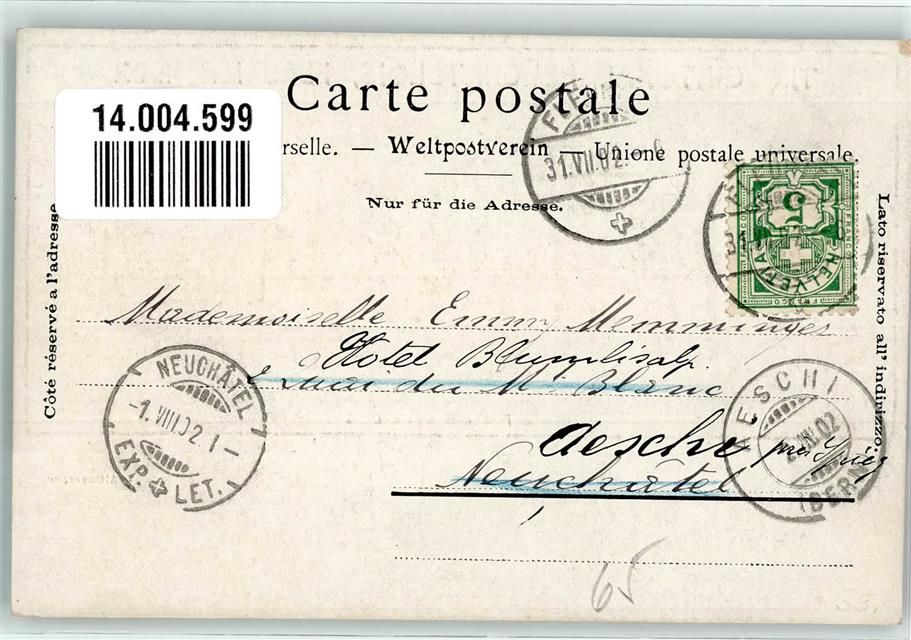 Carte postale
14.004.599
rselle. — Weltpostverein — Unione postale universale.
Nur für die Adresse.
Côté réservé a l'adresse
Lato riservato all' indirizzo.
31.VII.02
5
FRANCO
HELVETIA
FRANCO
Mademoiselle Emmy Memminger
Hotel Blumlisalp
Quai du Mt Blanc
Aeschi près Spiez
Neuchâtel
NEUCHÂTEL
-1.VIII.02.1-
EXP. LET.
AESCHI
2.VIII.02
(BERN)
65